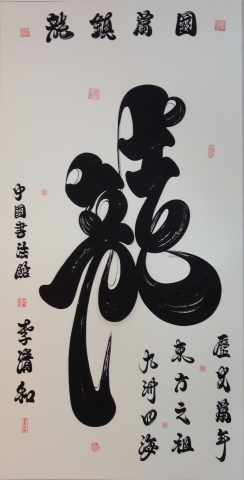 龍鎮萬國
龍
歷史萬年
東方之祖
九洲四海
中國書法
李清和